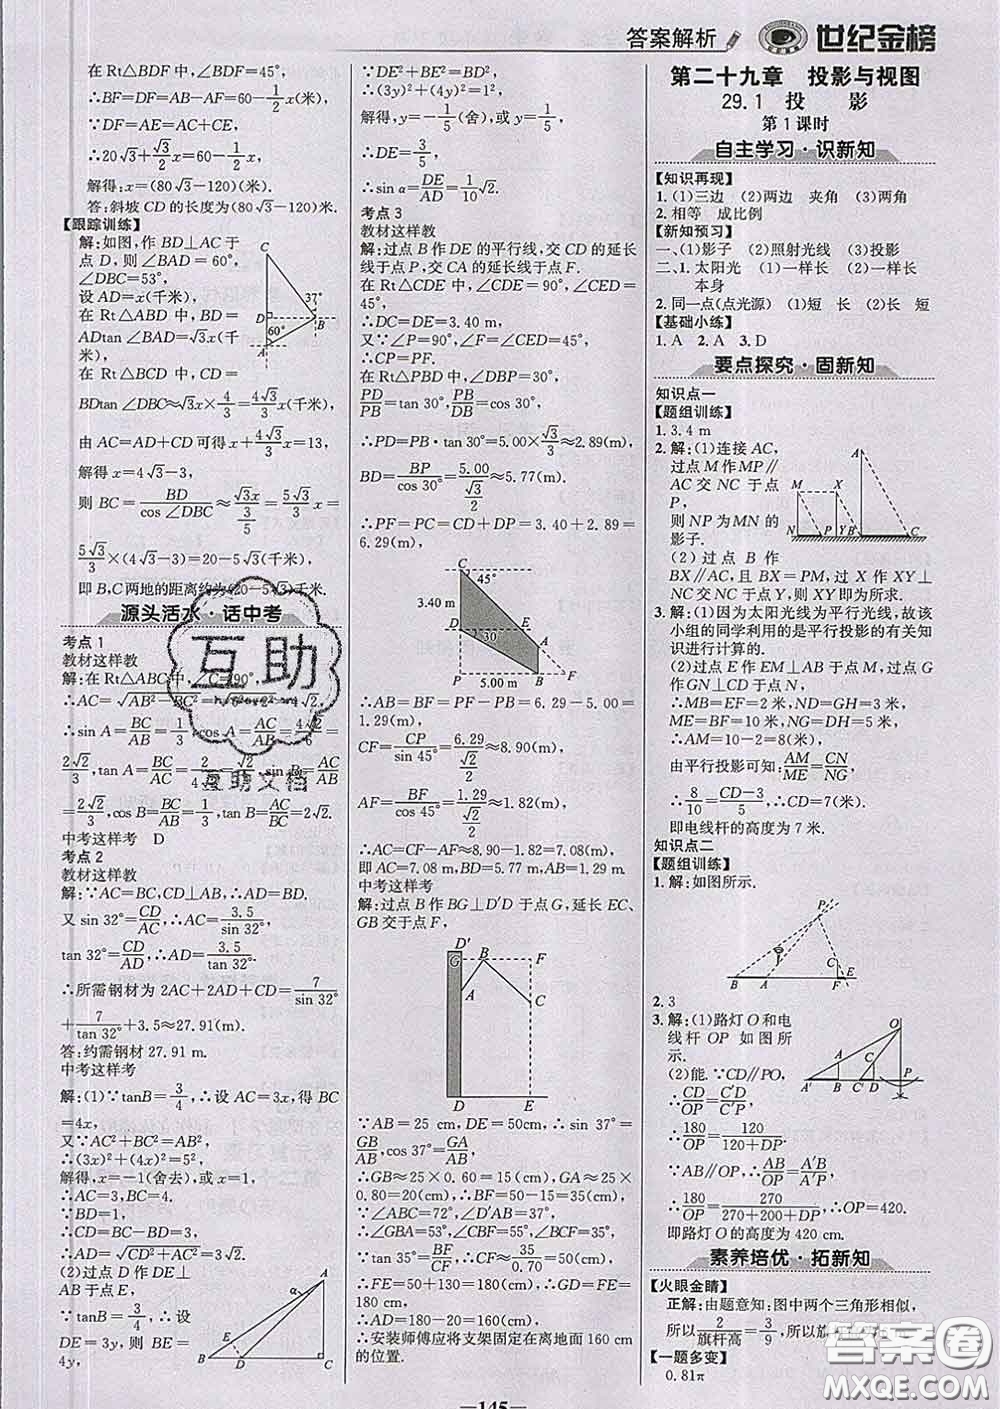 答案解析 世纪金榜
在 Rt△BDF 中,∠BDF=45°,
∴BF=DF=AB-AF=60-1/2 x,
∵DF=AE=AC+CE,
∴20√3+√3/2 x=60-1/2 x,
解得:x=(80√3-120)(米).
答:斜坡 CD 的长度为(80√3-120)米.
【跟踪训练】
解:如图,作 BD⊥AC 于
点 D,则∠BAD=60°,
∠DBC=53°,
设 AD=x(千米),
在 Rt△ABD 中,BD=
ADtan∠BAD=√3x(千
米).
在 Rt△BCD 中,CD=
BDtan∠DBC≈√3x×4/3=4√3/3 x(千米),
由 AC=AD+CD 可得 x+4√3/3 x=13,
解得 x=4√3-3,
则 BC=BD/cos∠DBC≈√3x/(3/5)=5√3/3 x=
5√3/3×(4√3-3)=20-5√3(千米),
即 B,C 两地的距离约为(20-5√3)千米.
源头活水·话中考
考点 1
教材这样教
解:在 Rt△ABC 中,∠C=90°,
∴AC=√(AB²-BC²)=√(6²-2²)=4√2,
∴sin A=BC/AB=1/3,cos A=AC/AB=4√2/6=
2√2/3,tan A=BC/AC=2/4√2=√2/4,sin B=AC/AB
=2√2/3,cos B=BC/AB=1/3,tan B=AC/BC=2√2.
中考这样考 D
考点 2
教材这样教
解:∵AC=BC,CD⊥AB,∴AD=BD.
又 sin 32°=CD/AC,∴AC=3.5/sin 32°,
tan 32°=CD/AD,∴AD=3.5/tan 32°.
∴所需钢材为 2AC+2AD+CD=7/sin 32°
+7/tan 32°+3.5≈27.91(m).
答:约需钢材 27.91 m.
中考这样考
解:(1)∵tanB=3/4,∴设 AC=3x,得 BC
=4x,
又∵AC²+BC²=AB²,
∴(3x)²+(4x)²=5²,
解得:x=-1(舍去),或 x=1,
∴AC=3,BC=4,
∵BD=1,
∴CD=BC-BD=3,
∴AD=√(CD²+AC²)=3√2.
(2)过点 D 作 DE⊥
AB 于点 E,
∵tanB=3/4,∴设
DE=3y,则 BE=
4y,
∵DE²+BE²=BD²,
∴(3y)²+(4y)²=1²,
解得,y=-1/5(舍),或 y=1/5,
∴DE=3/5,
∴sin α=DE/AD=1/10 √2.
考点 3
教材这样教
解:过点 B 作 DE 的平行线,交 CD 的延长
线于点 P,交 CA 的延长线于点 F.
在 Rt△CDE 中,∠CDE=90°,∠CED=
45°,
∴DC=DE=3.40 m,
又∵∠P=90°,∠F=∠CED=45°,
∴CP=PF.
在 Rt△PBD 中,∠DBP=30°,
PD/PB=tan 30°,PB/DB=cos 30°,
∴PD=PB·tan 30°=5.00×√3/3≈2.89(m).
BD=BP/cos 30°=5.00/(√3/2)≈5.77(m),
∴PF=PC=CD+DP=3.40+2.89=
6.29(m),
C 45° 3.40 m D 30 E A P 5.00 m B F
∴AB=BF=PF-PB=6.29-5.00=
1.29(m).
CF=CP/sin 45°=6.29/(√2/2)≈8.90(m),
AF=BF/cos 45°=1.29/(√2/2)≈1.82(m),
∴AC=CF-AF≈8.90-1.82=7.08(m),
即 AC=7.08 m,BD=5.77 m,AB=1.29 m.
中考这样考
解:过点 B 作 BG⊥D′D 于点 G,延长 EC、
GB 交于点 F,
D′ G B F A C D E
∵AB=25 cm,DE=50cm,∴sin 37°=
GB/AB,cos37°=GA/AB,
∴GB≈25×0.60=15(cm),GA≈25×
0.80=20(cm),∴BF=50-15=35(cm),
∵∠ABC=72°,∠D′AB=37°,
∴∠GBA=53°,∠CBF=55°,∠BCF=35°,
∵tan 35°=BF/CF,∴CF≈35/0.70=50(cm),
∴FE=50+130=180(cm),∴GD=FE=
180(cm),
∴AD=180-20=160(cm),
∴安装师傅应将支架固定在离地面 160 cm
的位置.
第二十九章 投影与视图
29.1 投 影
第 1 课时
自主学习·识新知
【知识再现】
1.(1)三边 (2)两边 夹角 (3)两角
2.相等 成比例
【新知预习】
一、(1)影子 (2)照射光线 (3)投影
二、1.太阳光 (1)一样长 (2)一样长
本身
2.同一点(点光源) (1)短 长 (2)长 短
【基础小练】
1.A 2.A 3.D
要点探究·固新知
知识点一
【题组训练】
1.3.4 m
2.解:(1)连接 AC,
过点 M 作 MP∥
AC 交 NC 于点
P,
则 NP 为 MN 的
影子.
(2)过点 B 作
BX∥AC,且 BX=MP,过 X 作 XY⊥
NC 交 NC 于点 Y,则 XY 即为所求.
3.解:(1)因为太阳光线为平行光线,故该
小组的同学利用的是平行投影的有关知
识进行计算的.
(2)过点 E 作 EM⊥AB 于点 M,过点 G
作 GN⊥CD 于点 N,
∴MB=EF=2 米,ND=GH=3 米,
ME=BF=10 米,NG=DH=5 米,
∴AM=10-2=8(米),
由平行投影可知:AM/ME=CN/NG,
∴8/10=CD-3/5,∴CD=7(米).
即电线杆的高度为 7 米.
知识点二
【题组训练】
1.解:如图所示.
2.3
3.解:(1)路灯 O 和电
线杆 OP 如图所
示.
(2)能.∵CD∥PO,
∴CD/OP=C′D/C′P,
∴180/OP=120/120+DP.
∵AB∥OP,∴AB/OP=A′B/A′P,
∴180/OP=270/270+200+DP,∴OP=420.
即路灯 O 的高度为 420 cm.
素养培优·拓新知
【火眼金睛】
正解:由题意知:图中两个三角形相似,
所以2/旗杆高=3/9,所以
【一题多变】
0.81π
—145—
互助
互助文档
答案圈
MXQE.COM